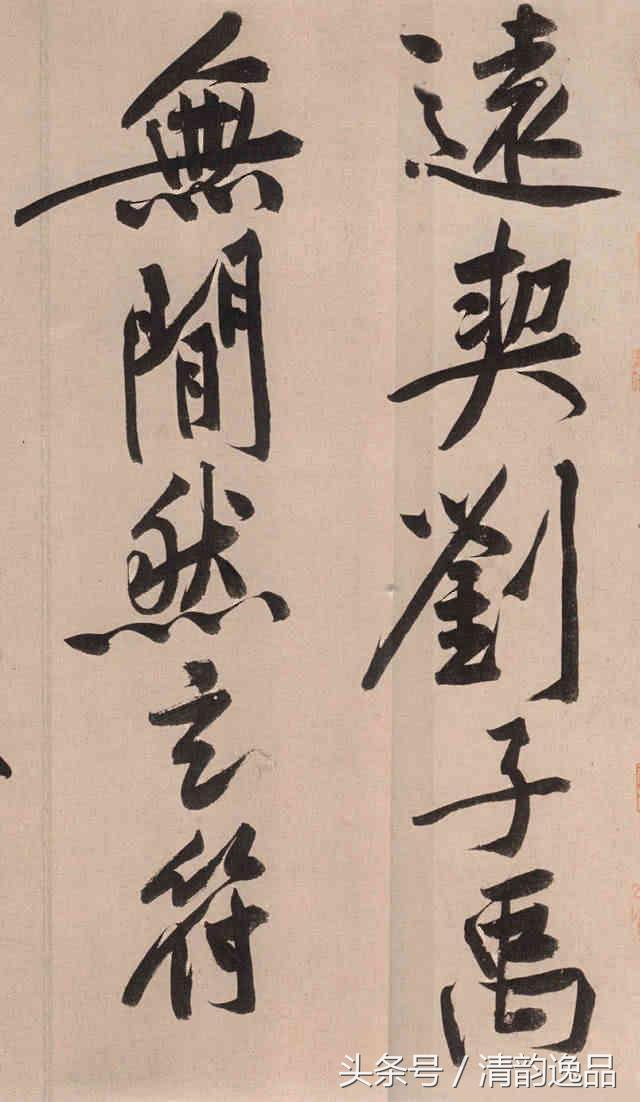 遠契劉子禹
無間然玄符
头条号 / 清韵逸品